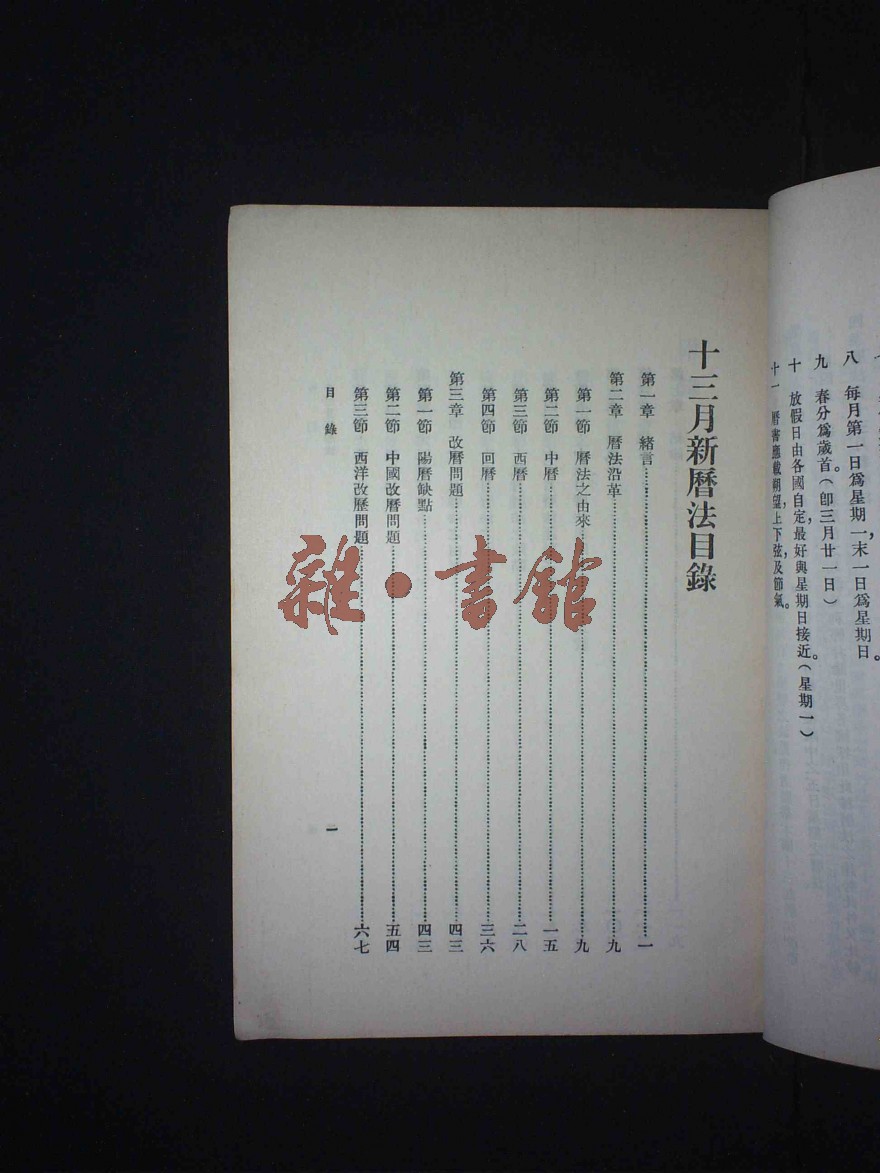 八　每月第一日爲星期一，末一日爲星期日。
九　春分爲歲首（卽三月廿一日）
十　放假日由各國自定，最好與星期日接近。（星期一）
十一　曆書應載朔望，上下弦及節氣。
十三月新曆法目錄
第一章　緒言……一
第二章　曆法沿革……九
第一節　曆法之由來……九
第二節　中曆……一五
第三節　西曆……二八
第四節　回曆……三六
第三章　改曆問題……四三
第一節　陽曆缺點……四三
第二節　中國改曆問題……五四
第三節　西洋改歷問題……六七
目錄　一
雜·書館